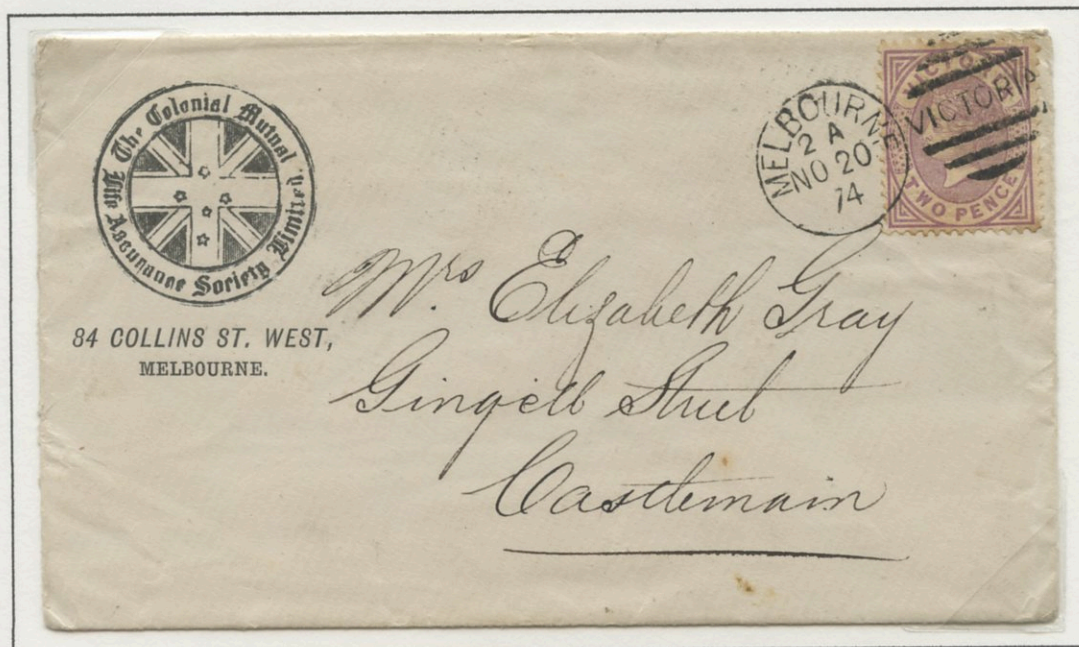 The Colonial Mutual Life Assurance Society Limited
84 COLLINS ST. WEST,
MELBOURNE.
MELBOURNE
2 A
NO 20
74
VICTORIA
VICTORIA
TWO PENCE
Mrs Elizabeth Gray
Gingell Street
Castlemain